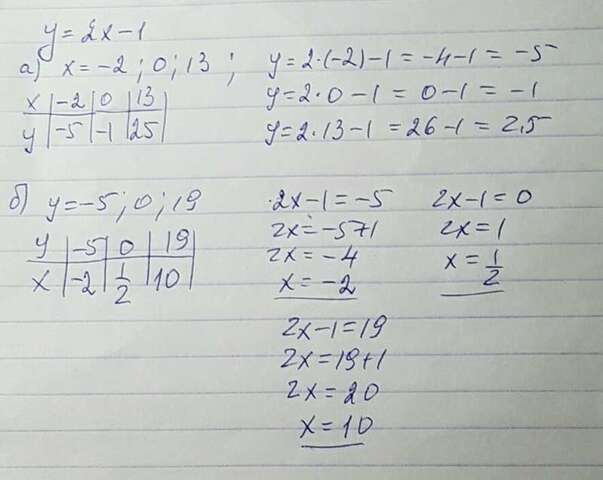 y=2x-1
а) x=-2; 0; 13;
x | -2 | 0 | 13
y | -5 | -1 | 25
y=2·(-2)-1=-4-1=-5
y=2·0-1=0-1=-1
y=2·13-1=26-1=2,5
б) y=-5; 0; 19
y | -5 | 0 | 19
x | -2 | 1/2 | 10
2x-1=-5
2x=-5+1
2x=-4
x=-2
2x-1=0
2x=1
x=1/2
2x-1=19
2x=19+1
2x=20
x=10